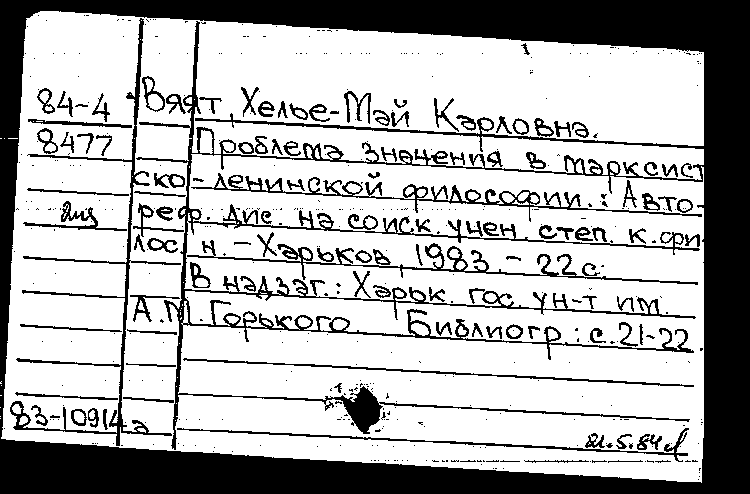 84-4 Вяят, Хелье-Май Карловна.
8477 Проблема значения в марксист
ско-ленинской философии.: Авто-
реф. дис. на соиск. учен. степ. к. фи
лос. н. - Харьков, 1983. - 22 с.
В надзаг.: Харьк. гос. ун-т им.
А.М. Горького. Библиогр.: с. 21-22.
83-10914а
21.5.84